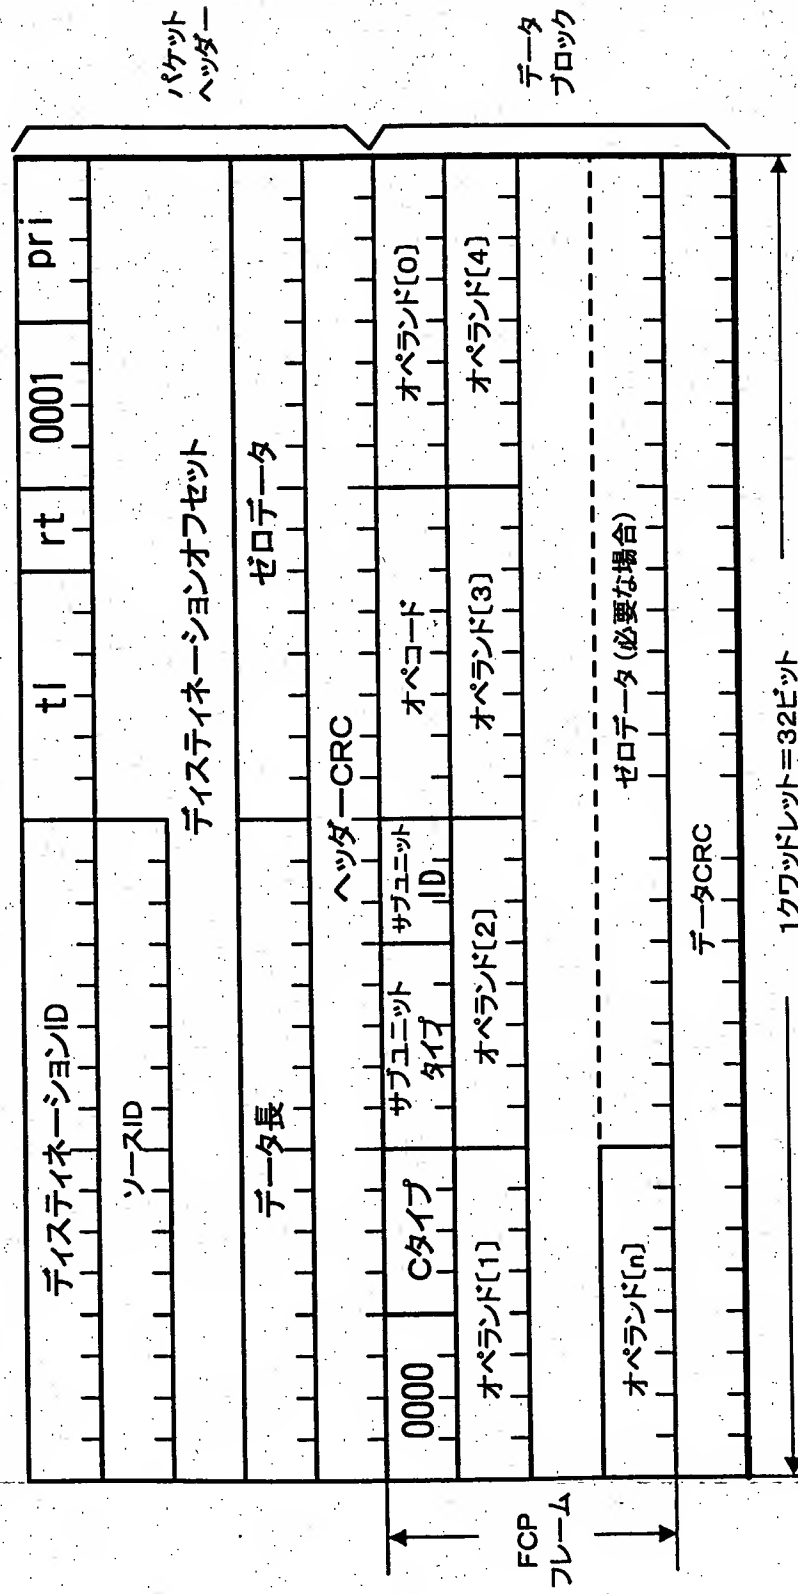 ディスティネーションID tl rt 0001 pri
ソースID
ディスティネーションオフセット
データ長 ゼロデータ
ヘッダーCRC
0000 Cタイプ サブユニット タイプ サブユニット ID オペコード オペランド[0]
オペランド[1] オペランド[2] オペランド[3] オペランド[4]
オペランド[n] ゼロデータ(必要な場合)
データCRC
パケット
ヘッダー
データ
ブロック
FCP
フレーム
1クワッドレット=32ビット